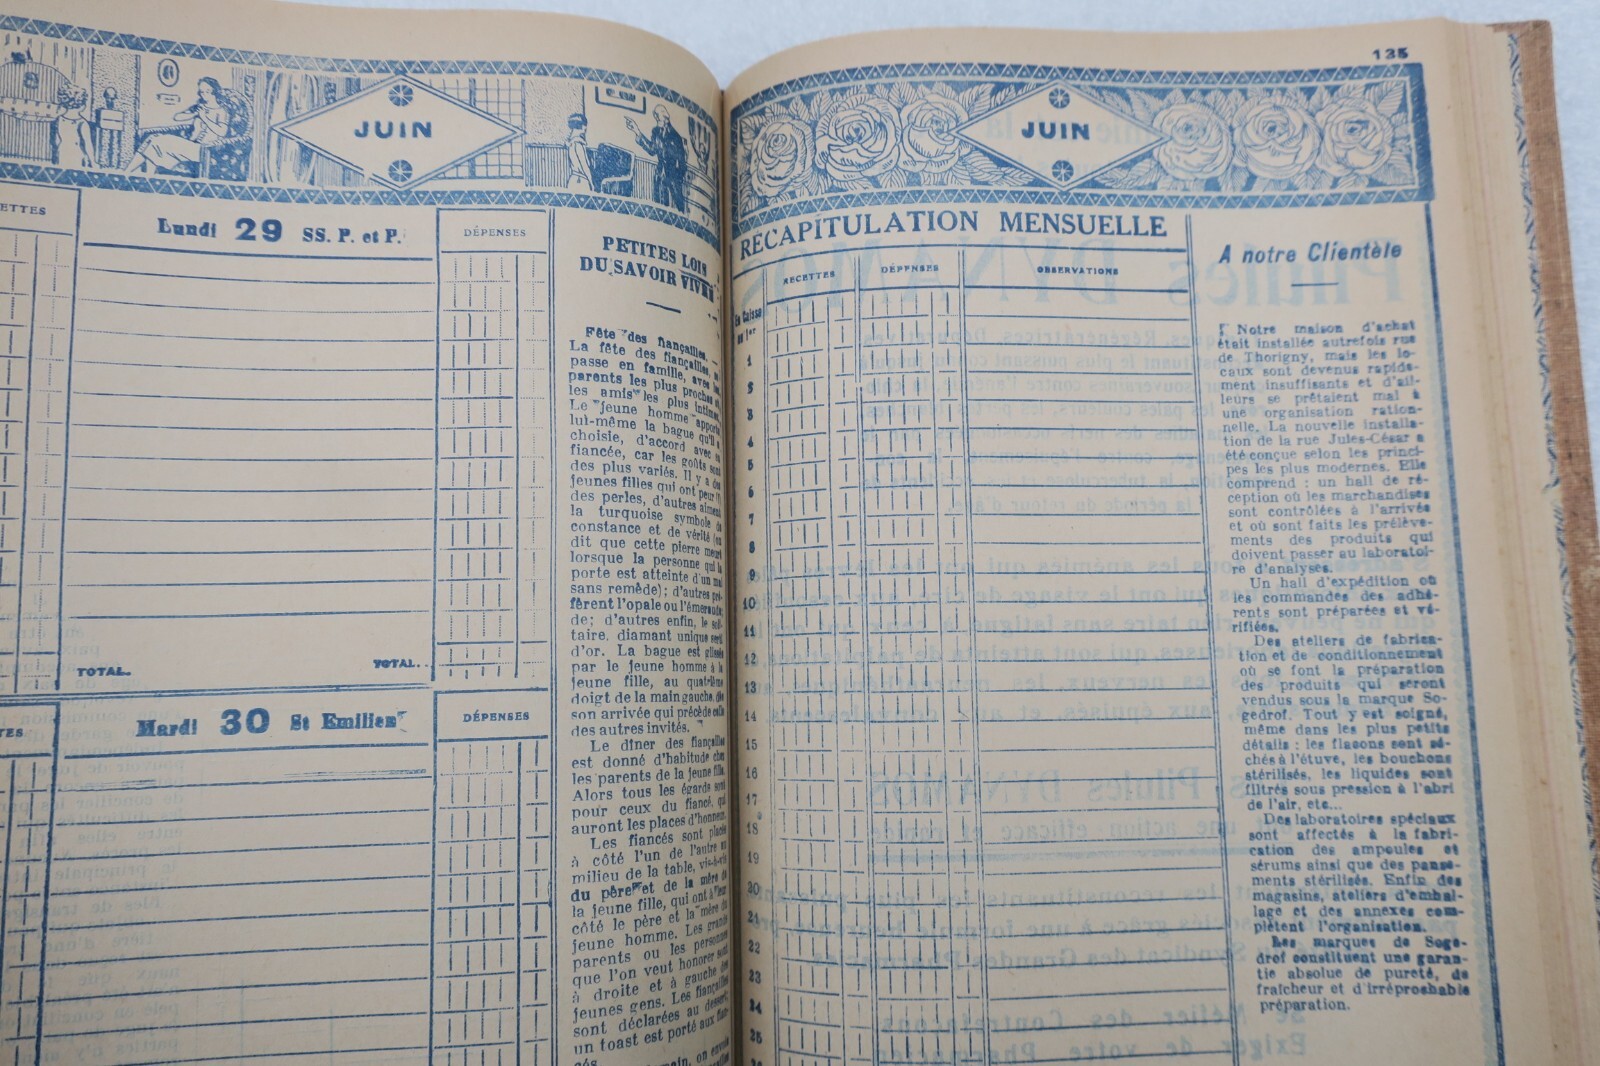 JUIN
ETTES
Lundi 29 SS. P. et P.
DÉPENSES
TOTAL.
TOTAL.
TES
Mardi 30 St Emilien
DÉPENSES
PETITES LOIS
DU SAVOIR VIVRE
Fête des fiançailles. —
La fête des fiançailles,
passe en famille, avec les
parents les plus proches et
les amis les plus intimes.
Le jeune homme apporte
lui-même la bague qu'il a
choisie, d'accord avec sa
fiancée, car les goûts sont
des plus variés. Il y a des
jeunes filles qui ont peur
des perles, d'autres aiment
la turquoise symbole de
constance et de vérité (on
dit que cette pierre meurt
lorsque la personne qui la
porte est atteinte d'un mal
sans remède); d'autres pré-
fèrent l'opale ou l'émerau-
de; d'autres enfin, le soli-
taire, diamant unique serti
d'or. La bague est glissée
par le jeune homme à la
jeune fille, au quatrième
doigt de la main gauche, dès
son arrivée qui précède celle
des autres invités.
Le dîner des fiançailles
est donné d'habitude chez
les parents de la jeune fille.
Alors tous les égards sont
pour ceux du fiancé, qui
auront les places d'honneur.
Les fiancés sont placés
à côté l'un de l'autre au
milieu de la table, vis-à-vis
du père et de la mère de
la jeune fille, qui ont à leur
côté le père et la mère du
jeune homme. Les grands
parents ou les personnes
que l'on veut honorer sont
à droite et à gauche des
jeunes gens. Les fiançailles
sont déclarées au dessert,
un toast est porté aux fian-
cés.
main, on envoie
135
JUIN
RÉCAPITULATION MENSUELLE
RECETTES
DÉPENSES
OBSERVATIONS
En Caisse
au 1er
1
2
3
4
5
6
7
8
9
10
11
12
13
14
15
16
17
18
19
20
21
22
23
24
25
A notre Clientèle
Notre maison d'achat
était installée autrefois rue
de Thorigny, mais les lo-
caux sont devenus rapide-
ment insuffisants et d'ail-
leurs se prêtaient mal à
une organisation ration-
nelle. La nouvelle installa-
tion de la rue Jules-César a
été conçue selon les princi-
pes les plus modernes. Elle
comprend : un hall de ré-
ception où les marchandises
sont contrôlées à l'arrivée
et où sont faits les prélève-
ments des produits qui
doivent passer au laboratoi-
re d'analyses.
Un hall d'expédition où
les commandes des adhé-
rents sont préparées et vé-
rifiées.
Des ateliers de fabrica-
tion et de conditionnement
où se font la préparation
des produits qui seront
vendus sous la marque So-
gedrof. Tout y est soigné,
même dans les plus petits
détails : les flacons sont sé-
chés à l'étuve, les bouchons
stérilisés, les liquides sont
filtrés sous pression à l'abri
de l'air, etc...
Des laboratoires spéciaux
sont affectés à la fabri-
cation des ampoules et
sérums ainsi que des panse-
ments stérilisés. Enfin des
magasins, ateliers d'embal-
lage et des annexes com-
plètent l'organisation.
Les marques de Soge-
drof constituent une garan-
tie absolue de pureté, de
fraîcheur et d'irréprochable
préparation.